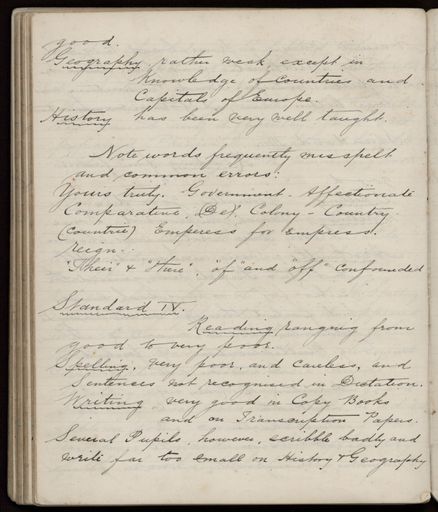 good.
Geography, rather weak, except in
Knowledge of Countries and
Capitals of Europe.
History has been very well taught.
Note words frequently misspelt
and common errors:
Yours truly. Government. Affectionate
Comparative, Colony - Country
(Countrie) Emperess for Empress.
reign.
"Their" & "there", "of" and "off" confounded
Standard IV.
Reading, ranging from
good to very poor.
Spelling, very poor, and careless, and
Sentences not recognised in Dictation.
Writing very good in Copy Books
and on Transcription Papers.
Several Pupils, however, scribble badly and
write far too small on History & Geography